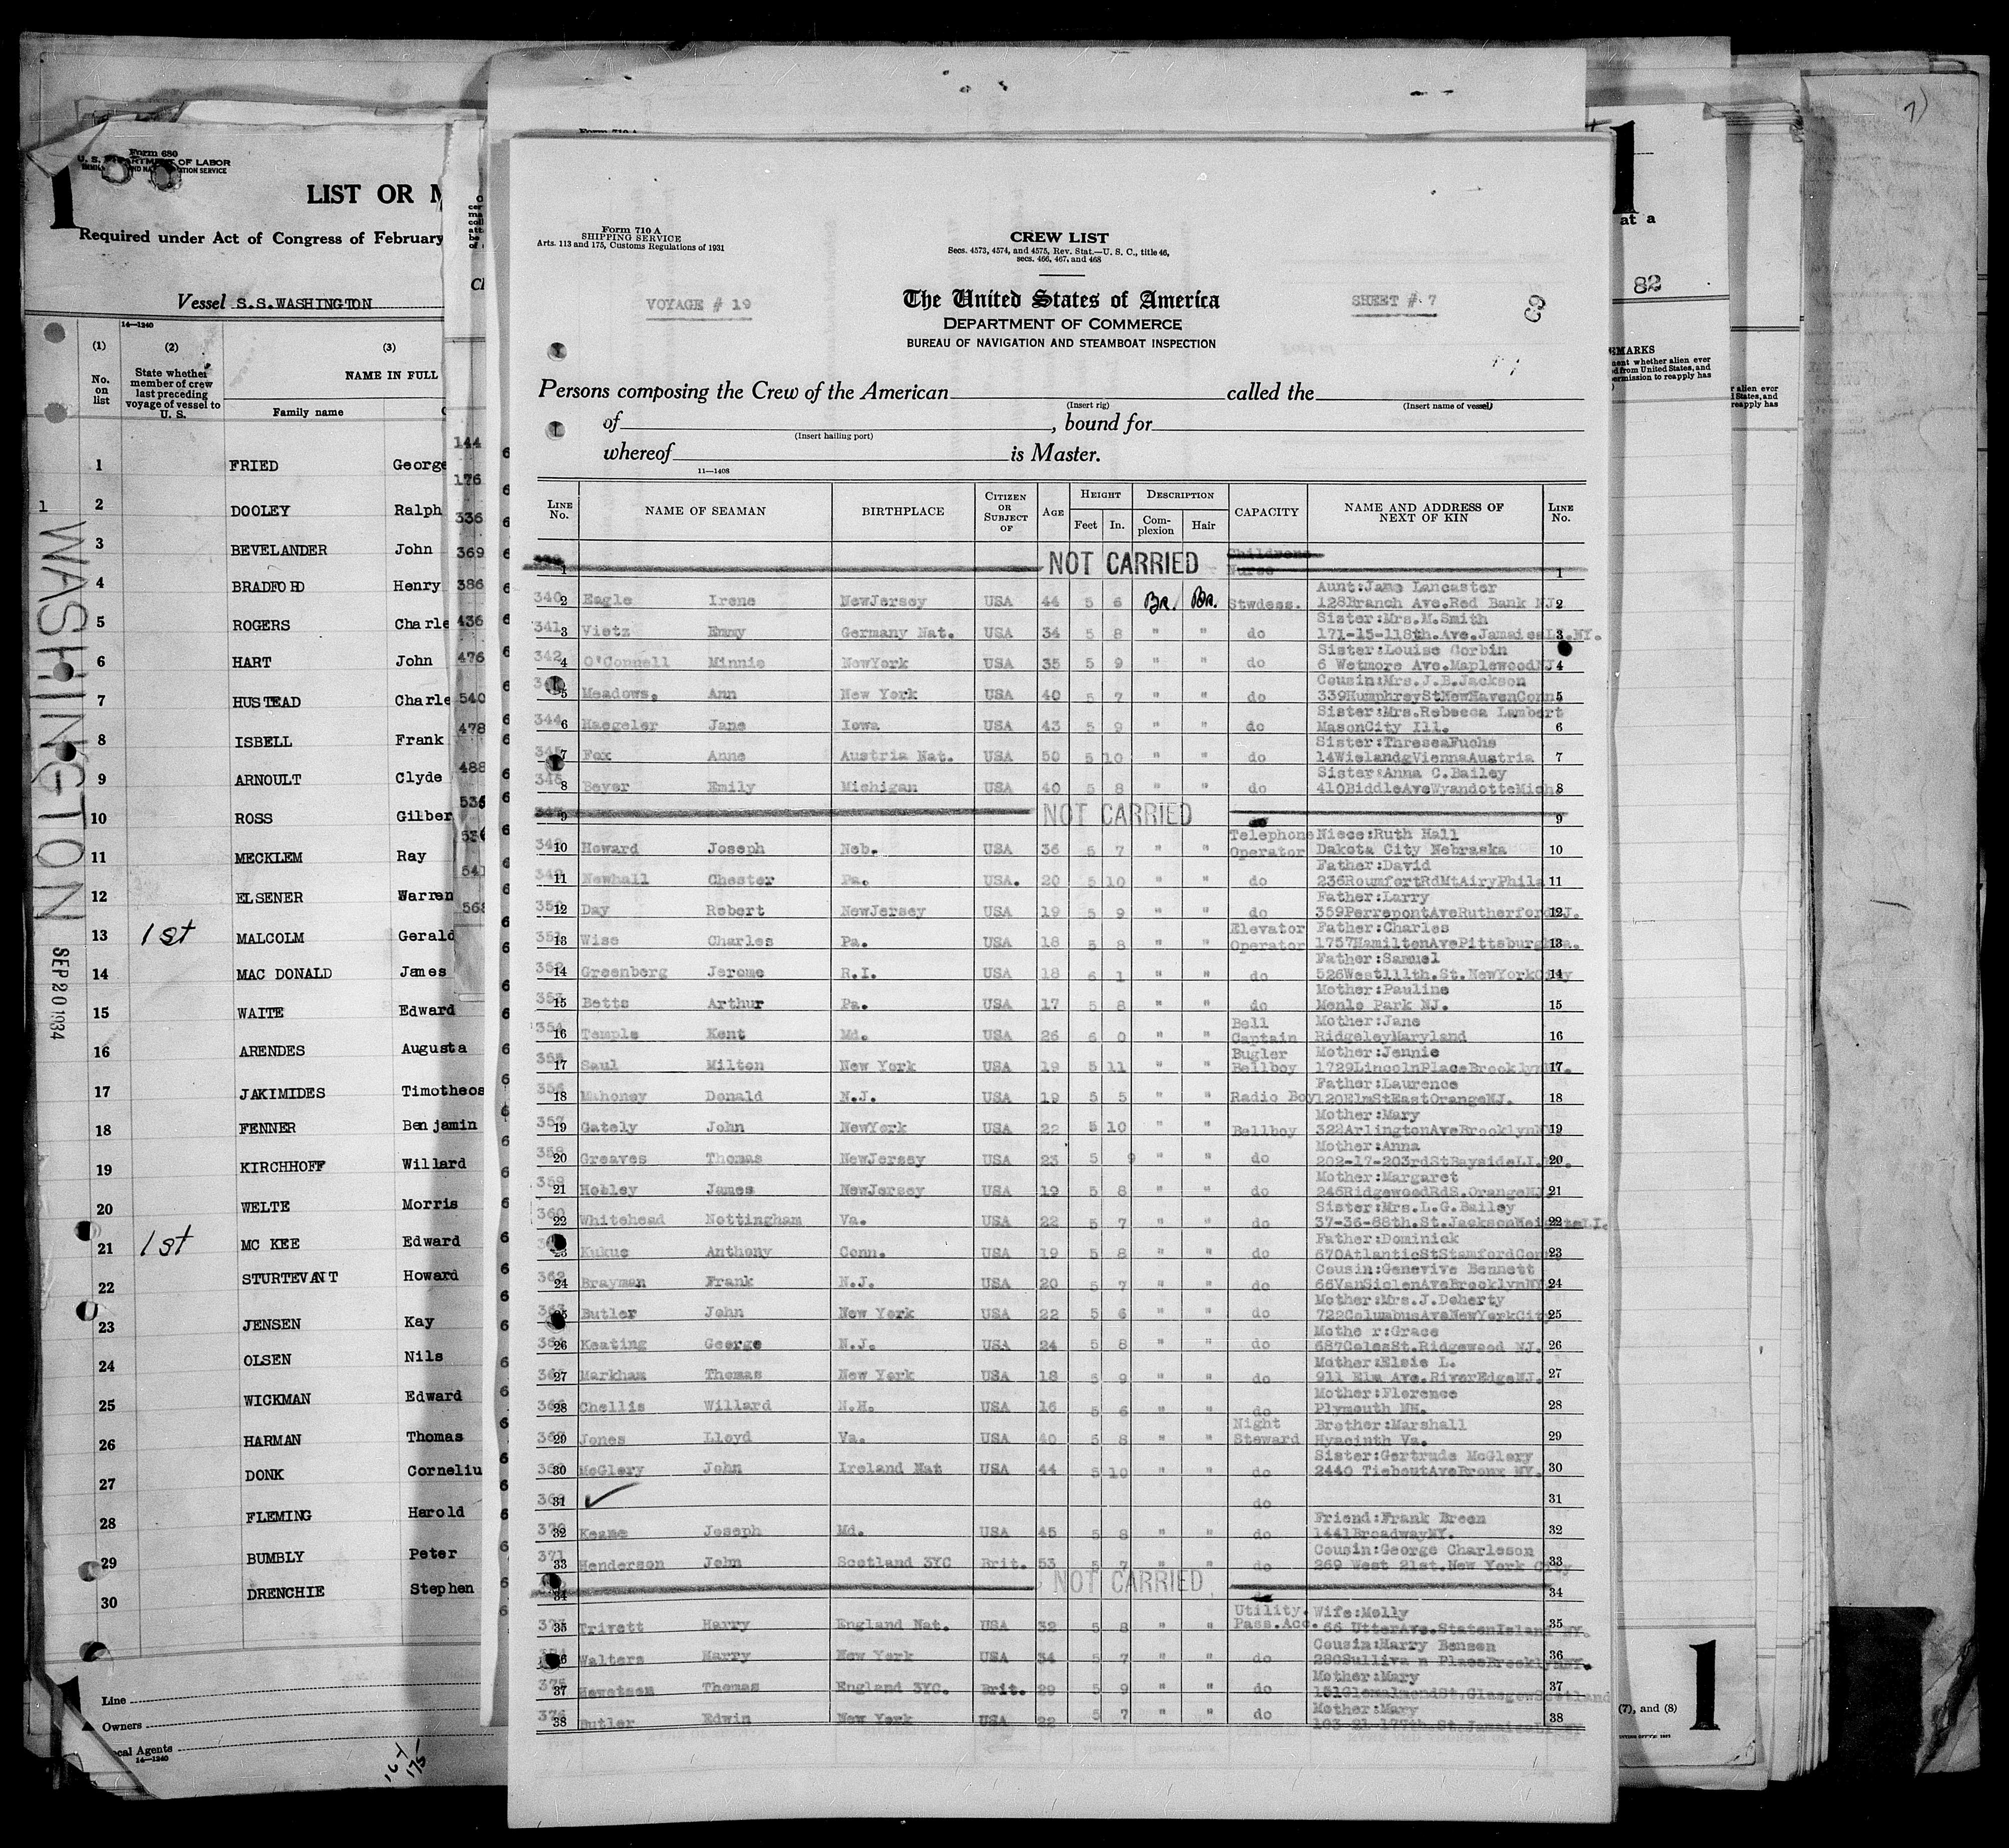 Form 680
U. S. DEPARTMENT OF LABOR
LIST OR
Required under Act of Congress of February
Vessel S.S.WASHINGTON
14—1240
(1) (2) (3)
No. on list
State whether member of crew last preceding voyage of vessel to U. S.
NAME IN FULL
Family name
1 FRIED George
2 DOOLEY Ralph
3 BEVELANDER John
4 BRADFORD Henry
5 ROGERS Charle
6 HART John
7 HUSTEAD Charle
8 ISBELL Frank
9 ARNOULT Clyde
10 ROSS Gilber
11 MECKLEM Ray
12 ELSENER Warren
13 1st MALCOLM Gerald
14 MAC DONALD James
15 WAITE Edward
16 ARENDES Augusta
17 JAKIMIDES Timotheos
18 FENNER Benjamin
19 KIRCHHOFF Willard
20 WELTE Morris
21 1st MC KEE Edward
22 STURTEVANT Howard
23 JENSEN Kay
24 OLSEN Nils
25 WICKMAN Edward
26 HARMAN Thomas
27 DONK Corneliu
28 FLEMING Harold
29 BUMBLY Peter
30 DRENCHIE Stephen
Line
Owners
Local Agents
14—1240
WASHINGTON
SEP 20 1934
144
176
336
369
386
436
476
540
478
488
536
536
541
568
Form 710 A
SHIPPING SERVICE
Arts. 113 and 175, Customs Regulations of 1931
CREW LIST
Secs. 4573, 4574, and 4575, Rev. Stat.—U. S. C., title 46,
secs. 466, 467, and 468
VOYAGE # 19
The United States of America
SHEET # 7
69
DEPARTMENT OF COMMERCE
BUREAU OF NAVIGATION AND STEAMBOAT INSPECTION
Persons composing the Crew of the American called the
(Insert rig) (Insert name of vessel)
of , bound for
(Insert hailing port)
whereof is Master.
11—1408
LINE No. NAME OF SEAMAN BIRTHPLACE CITIZEN OR SUBJECT OF AGE HEIGHT Feet In. DESCRIPTION Complexion Hair CAPACITY NAME AND ADDRESS OF NEXT OF KIN LINE No.
1 NOT CARRIED Childrens Nurse 1
Aunt:Jane Lancaster
340 2 Eagle Irene NewJersey USA 44 5 6 Br. Br. Stwdess. 128Branch Ave.Red Bank NJ 2
Sister:Mrs.M.Smith
341 3 Vietz Emmy Germany Nat. USA 34 5 8 " " do 171-15-118th.Ave.JamaicaLI.NY. 3
Sister:Louise Corbin
342 4 O'Connell Minnie NewYork USA 35 5 9 " " do 6 Wetmore Ave.MaplewoodNJ 4
Cousin:Mrs.J.B.Jackson
5 Meadows. Ann New York USA 40 5 7 " " do 339HumphreyStNewHavenConn. 5
Sister:Mrs.Rebecca Lambert
344 6 Haegeler Jane Iowa USA 43 5 9 " " do MasonCity Ill. 6
Sister:ThreseaFuchs
345 7 Fox Anne Austria Nat. USA 50 5 10 " " do 14WielandgViennaAustria 7
Sister:Anna C.Bailey
346 8 Beyer Emily Michigan USA 40 5 8 " " do 410BiddleAveWyandotteMich. 8
347 9 NOT CARRIED do 9
Telephone Niece:Ruth Hall
348 10 Howard Joseph Neb. USA 36 5 7 " " Operator Dakota City Nebraska 10
Father:David
349 11 Newhall Chester Pa. USA. 20 5 10 " " do 236RoumfortRdMtAiryPhila 11
Father:Larry
350 12 Day Robert NewJersey USA 19 5 9 " " do 359PerrepontAveRutherfordNJ. 12
Elevator Father:Charles
351 13 Wise Charles Pa. USA 18 5 8 " " Operator 1757HamiltonAvePittsburghPa. 13
Father:Samuel
352 14 Greenberg Jerome R.I. USA 18 6 1 " " do 526West111th.St.NewYorkCity 14
Mother:Pauline
353 15 Betts Arthur Pa. USA 17 5 8 " " do Menlo Park NJ. 15
Bell Mother:Jane
354 16 Temple Kent Md. USA 26 6 0 " " Captain RidgeleyMaryland 16
Bugler Mother:Jennie
355 17 Saul Milton New York USA 19 5 11 " " Bellboy 1729LincolnPlaceBrooklyn 17
Father:Laurence
356 18 Mahoney Donald N.J. USA 19 5 5 " " Radio Boy 120ElmStEastOrangeNJ. 18
Mother:Mary
357 19 Gately John NewYork USA 22 5 10 " " Bellboy 322ArlingtonAveBrooklynNY 19
Mother:Anna
358 20 Greaves Thomas NewJersey USA 23 5 9 " " do 202-17-203rdStBaysideLI. 20
Mother:Margaret
359 21 Hobley James NewJersey USA 19 5 8 " " do 246RidgewoodRdS.OrangeNJ 21
Sister:Mrs.L.G.Bailey
360 22 Whitehead Nottingham Va. USA 22 5 7 " " do 37-36-88th.St.JacksonHeightsLI. 22
Father:Dominick
23 Kukuc Anthony Conn. USA 19 5 8 " " do 670AtlanticStStamfordConn 23
Cousin:Genevive Bennett
362 24 Brayman Frank N.J. USA 20 5 7 " " do 66VanSiclenAveBrooklynNY 24
Mother:Mrs.J.Doherty
363 25 Butler John New York USA 22 5 6 " " do 722ColumbusAveNewYorkCity 25
Mothe r:Grace
364 26 Keating George N.J. USA 24 5 8 " " do 687ColesSt.Ridgewood NJ. 26
Mother:Elsie L.
365 27 Markham Thomas New York USA 18 5 9 " " do 911 Elm Ave.RiverEdgeNJ. 27
Mother:Florence
366 28 Chellis Willard N.H. USA 16 5 6 " " do Plymouth NH. 28
Night Brother:Marshall
367 29 Jones Lloyd Va. USA 40 5 8 " " Steward Hyacinth Va. 29
Sister:Gertrude McGlory
368 30 McGlory John Ireland Nat USA 44 5 10 " " do 2440 TieboutAveBronx NY. 30
369 31 ✓ do 31
Friend:Frank Breen
370 32 Keane Joseph Md. USA 45 5 8 " " do 1441BroadwayNY. 32
Cousin:George Charleson
371 33 Henderson John Scotland 3YC Brit. 53 5 7 " " do 269 West 21st.New York City 33
34 NOT CARRIED do 34
Utility. Wife:Molly
373 35 Trivett Harry England Nat. USA 32 5 8 " " Pass.Acc. 66 UtterAve.StatenIsland NY. 35
Cousin:Harry Benson
374 36 Walters Harry New York USA 34 5 7 " " do 280Sulliva n PlaceBrooklynNY. 36
Mother:Mary
375 37 Hewetson Thomas England 3YC. Brit. 29 5 9 " " do 151GlenalmondSt.GlasgowScotland 37
Mother:Mary
376 38 Butler Edwin New York USA 22 5 7 " " do 38
1
at a
82
REMARKS
(7), and (8)
1